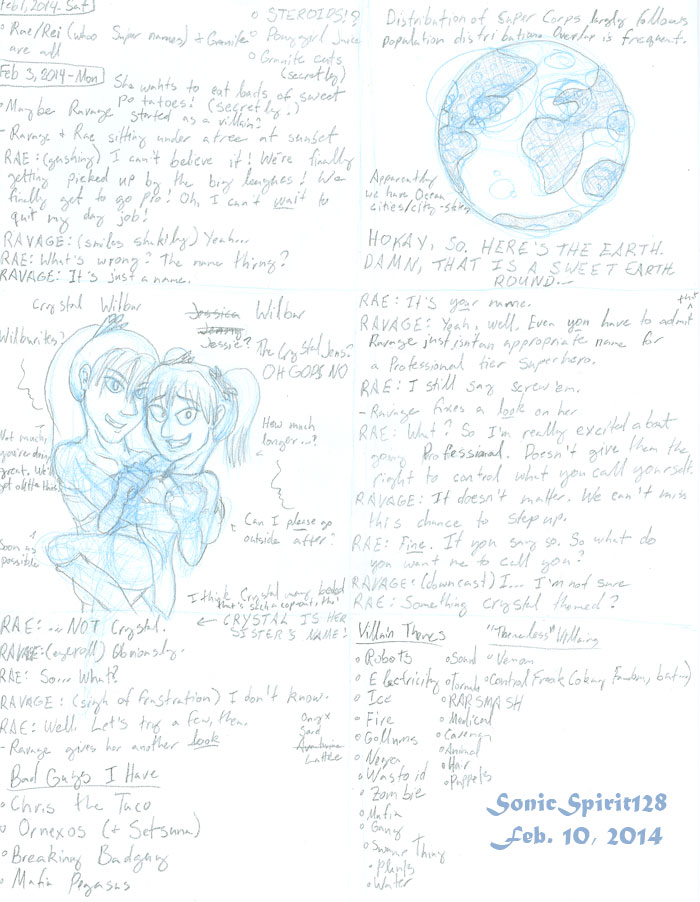 Feb 1, 2014 - Sat
Rae/Rei (who Super names) + Granite
are all
STEROIDS!?
Ponygirl Juice
Granite eats
(secretly)
Feb 3, 2014 - Mon
She wants to eat loads of sweet
potatoes! (secretly.)
Maybe Ravage started as a villain?
- Ravage + Rae sitting under a tree at sunset
RAE: (gushing) I can't believe it! We're finally
getting picked up by the big leagues! We
finally get to go pro! Oh, I can't wait to
quit my day job!
RAVAGE: (smiles shakily) Yeah...
RAE: What's wrong? The name thing?
RAVAGE: It's just a name.
Distribution of Super Corps largely follows
population distribution. Overlap is frequent.
Apparently
we have Ocean
cities/city-states
HOKAY, SO. HERE'S THE EARTH.
DAMN, THAT IS A SWEET EARTH
ROUND...
Crystal Wilbur
Jessica Wilbur
Jenny
Jessie?
The Crystal Jens?
OH GODS NO
Wilburites?
Not much,
you're doing
great. We'll
get a little thing
Soon as
possible
How much
longer...?
Can I please go
outside after?
I think Crystal
that's such a copout, tho
RAE: It's your name.
RAVAGE: Yeah, well. Even you have to admit that
Ravage just isn't an appropriate name for
a Professional tier superhero.
RAE: I still say screw 'em.
- Ravage fixes a look on her
RAE: What? So I'm really excited about
going Professional. Doesn't give them the
right to control what you call yourself.
RAVAGE: It doesn't matter. We can't miss
this chance to step up.
RAE: Fine. If you say so. So what do
you want me to call you?
RAVAGE: (downcast) I... I'm not sure
RAE: Something crystal themed?
RAE: ...NOT Crystal.
← CRYSTAL IS HER
SISTER'S NAME!
RAVAGE: (eyeroll) Obviously.
RAE: So... What?
RAVAGE: (sigh of frustration) I don't know.
RAE: Well. Let's try a few, then.
- Ravage gives her another look
Onyx
Sard
Lattice
Bad Guys I Have
Chris the Taco
Ornexos (+ Setsuna)
Breaking Badguy
Mafia Pegasus
Villain Themes
Robots
Electricity
Ice
Fire
Gollums
Wastoid
Zombie
Mafia
Gang
Swamp Thing
Plants
Water
Sound
Tornado
RAR SMASH
Medical
Caveman
Animal
Hair
Puppets
"Themeless" Villains
Venom
Control Freak (Coheny Fandom, but...)
SonicSpirit128
Feb. 10, 2014